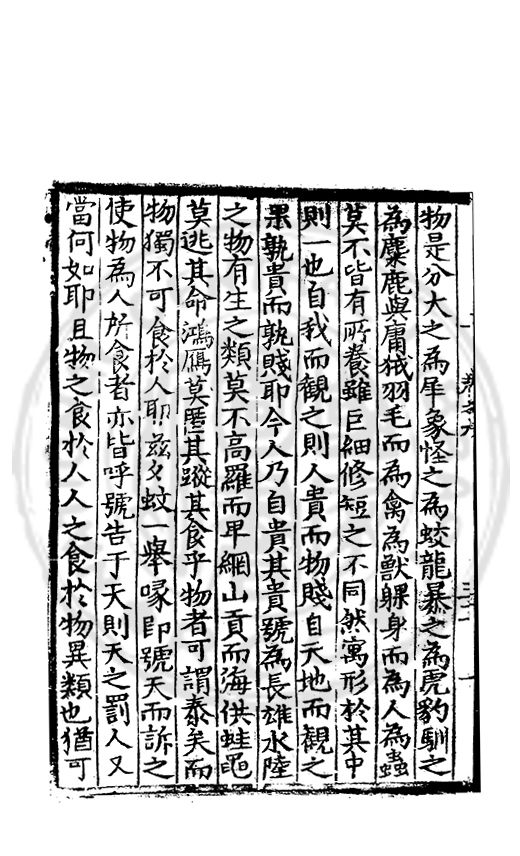 物是分大之為犀象怪之為蛟龍暴之為虎豹馴之
為麋鹿與庸狨羽毛而為禽為獸躶身而為人為蟲
莫不皆有所養雖巨細修短之不同然寓形於其中
則一也自我而觀之則人貴而物賤自天地而觀之
果孰貴而孰賤耶今人乃自貴其貴號為長雄水陸
之物有生之類莫不高羅而卑網山貢而海供蛙黽
莫逃其命鴻鴈莫匿其蹤其食乎物者可謂泰矣而
物獨不可食於人耶玆夕蚊一舉喙即號天而訴之
使物為人所食者亦皆呼號告于天則天之罰人又
當何如耶且物之食於人人之食於物異類也猶可